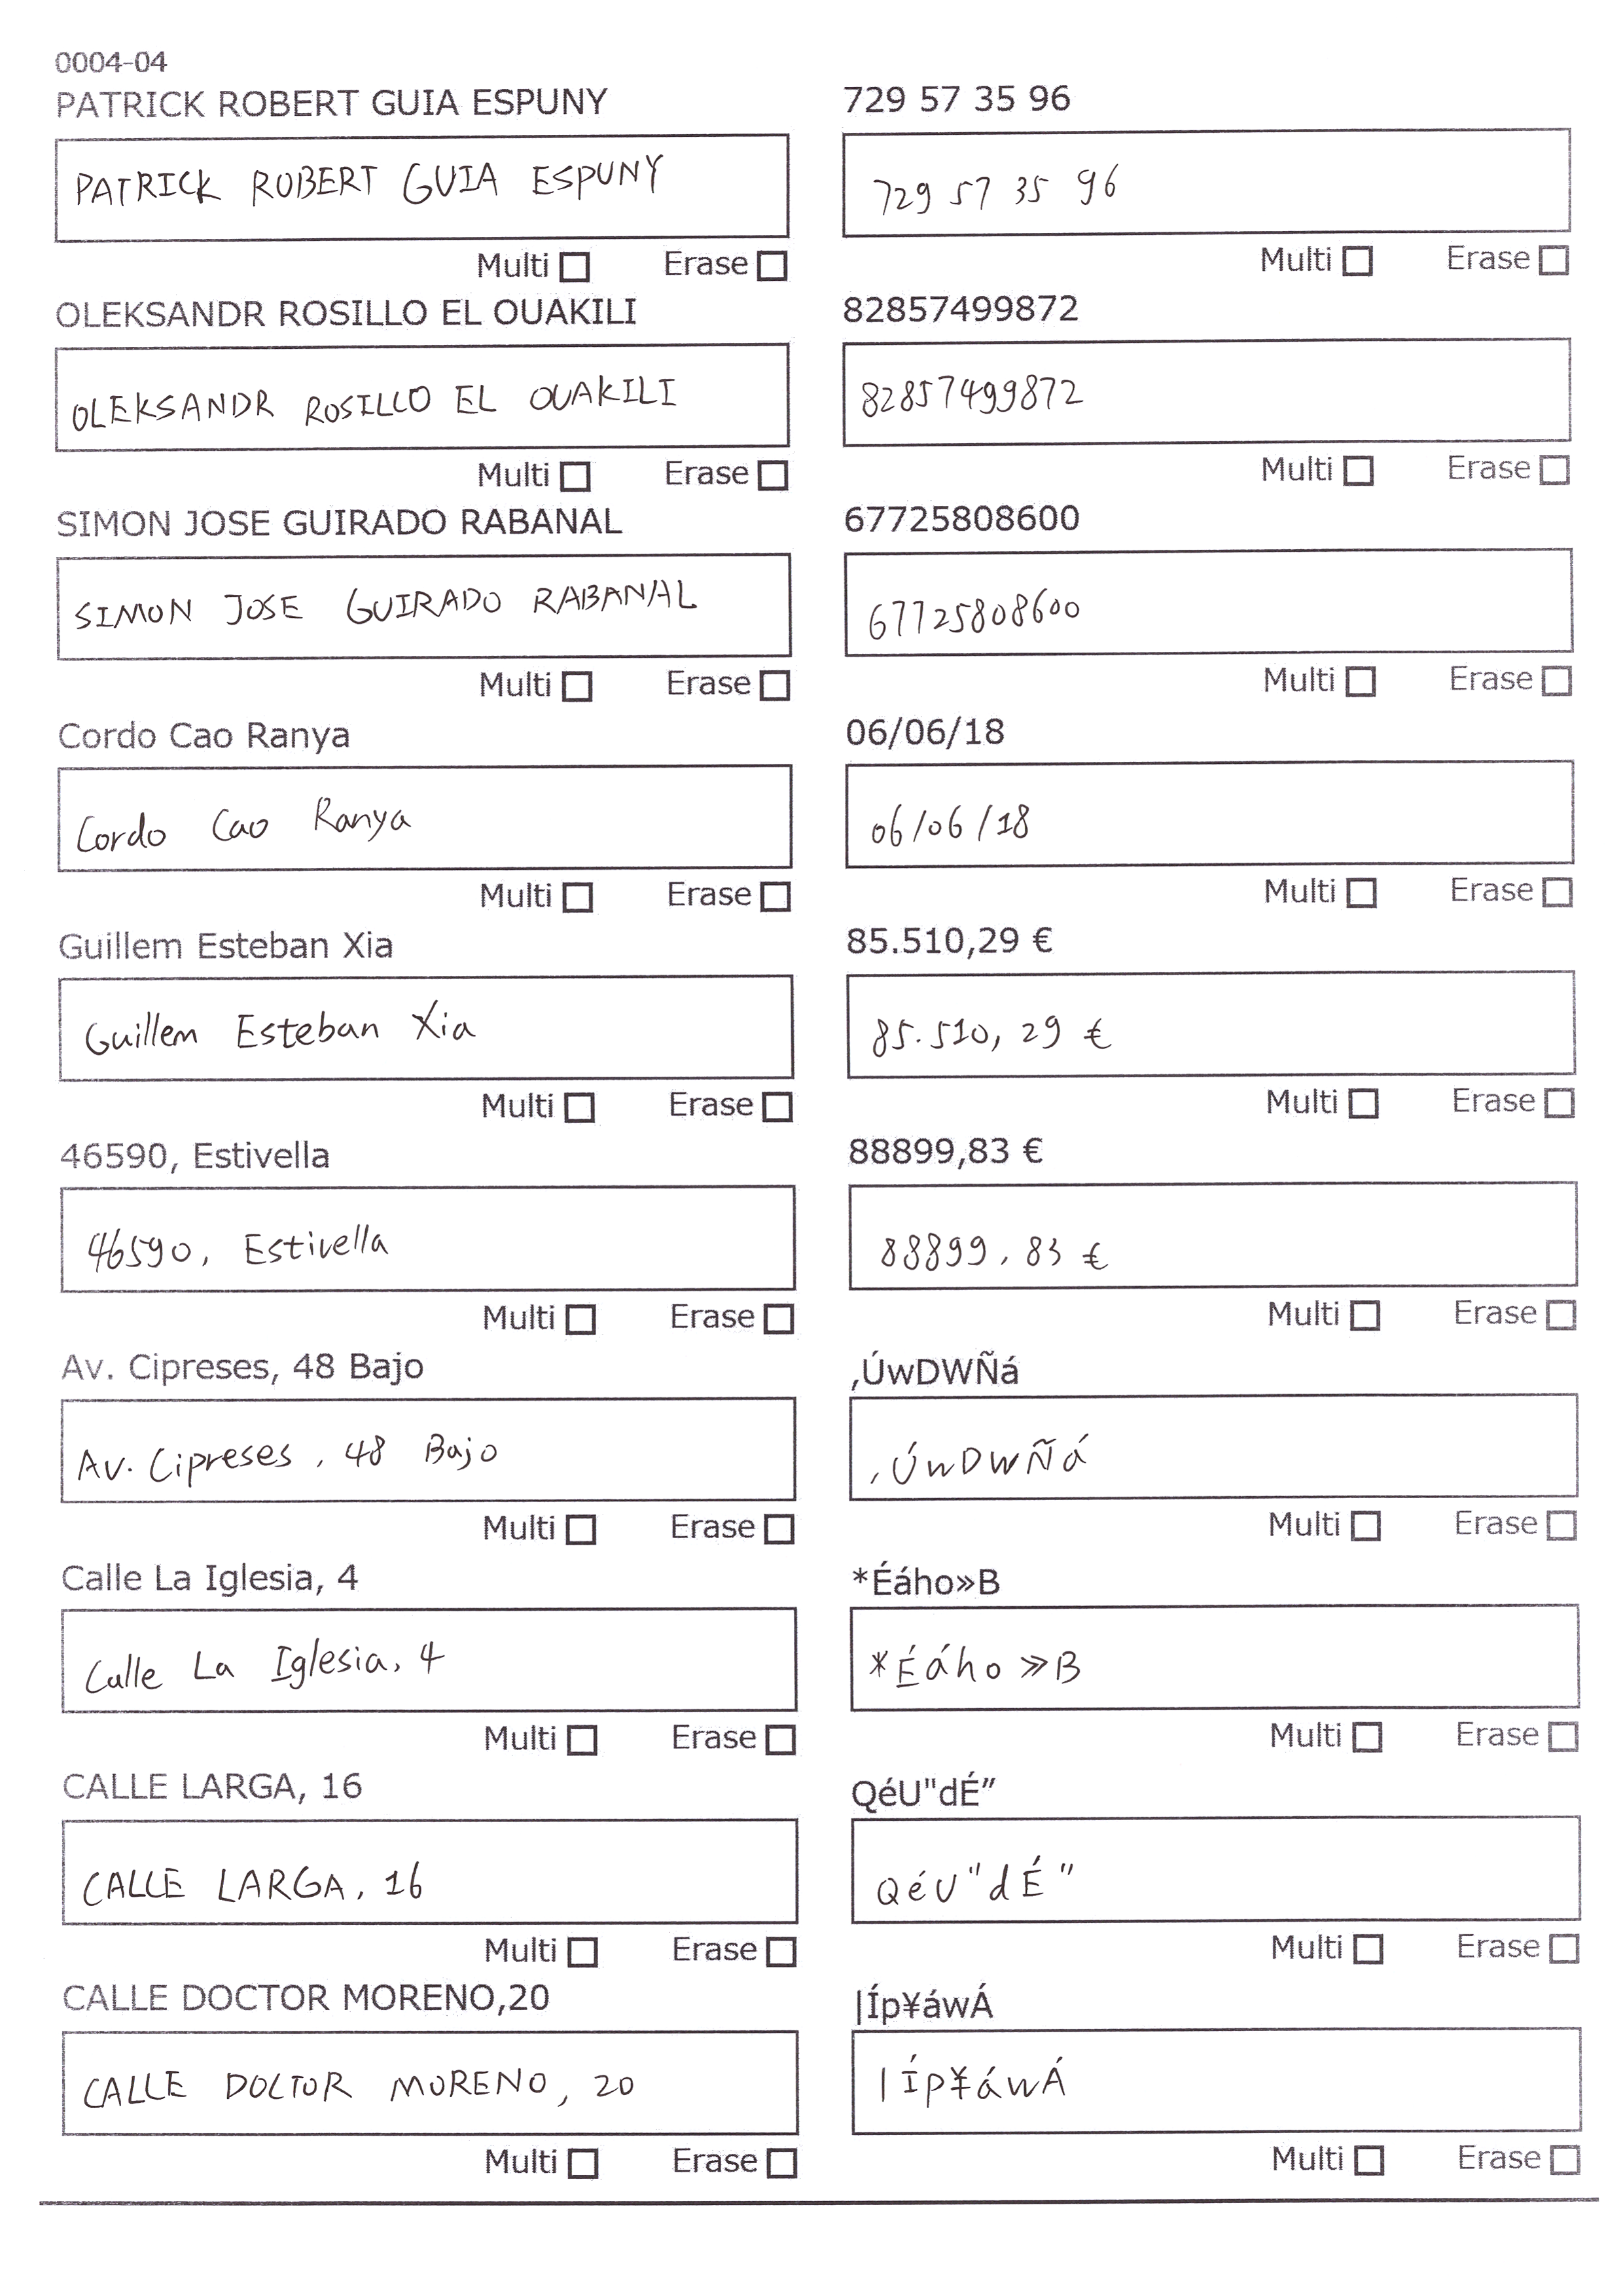 0004-04
PATRICK ROBERT GUIA ESPUNY
PATRICK ROBERT GUIA ESPUNY
Multi Erase
OLEKSANDR ROSILLO EL OUAKILI
OLEKSANDR ROSILLO EL OUAKILI
Multi Erase
SIMON JOSE GUIRADO RABANAL
SIMON JOSE GUIRADO RABANAL
Multi Erase
Cordo Cao Ranya
Cordo Cao Ranya
Multi Erase
Guillem Esteban Xia
Guillem Esteban Xia
Multi Erase
46590, Estivella
46590, Estivella
Multi Erase
Av. Cipreses, 48 Bajo
Av. Cipreses, 48 Bajo
Multi Erase
Calle La Iglesia, 4
Calle La Iglesia, 4
Multi Erase
CALLE LARGA, 16
CALLE LARGA, 16
Multi Erase
CALLE DOCTOR MORENO,20
CALLE DOCTOR MORENO, 20
Multi Erase
729 57 35 96
729 57 35 96
Multi Erase
82857499872
82857499872
Multi Erase
67725808600
67725808600
Multi Erase
06/06/18
06/06/18
Multi Erase
85.510,29 €
85.510, 29 €
Multi Erase
88899,83 €
88899,83 €
Multi Erase
,ÚwDWÑá
,ÚwDWÑá
Multi Erase
*Éáho»B
*Éáho»B
Multi Erase
QéU"dÉ″
QéU"dÉ″
Multi Erase
|Íp¥áwÁ
|Íp¥áwÁ
Multi Erase